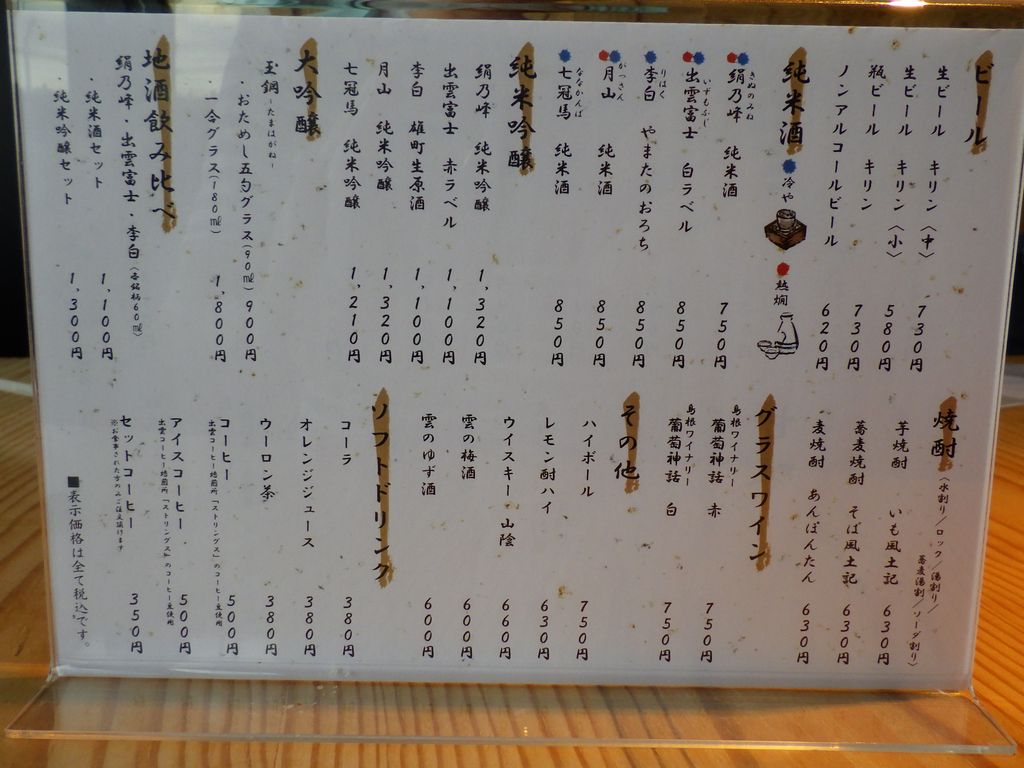 ビール
生ビール キリン〈中〉 730円
生ビール キリン〈小〉 580円
瓶ビール キリン 730円
ノンアルコールビール 620円
純米酒 冷や 熱燗
絹乃峰 純米酒 750円
きぬのみね
出雲富士 白ラベル 850円
いずもふじ
李白 やまたのおろち 850円
りはく
月山 純米酒 850円
がっさん
七冠馬 純米酒 850円
ななかんば
純米吟醸
絹乃峰 純米吟醸 1,320円
出雲富士 赤ラベル 1,100円
李白 雄町生原酒 1,100円
月山 純米吟醸 1,320円
七冠馬 純米吟醸 1,210円
大吟醸
玉鋼-たまはがね-
・おためし五勺グラス(90㎖) 900円
一合グラス(180㎖) 1,800円
地酒飲み比べ
絹乃峰・出雲富士・李白(各銘柄60㎖)
・純米酒セット 1,100円
・純米吟醸セット 1,300円
焼酎(水割り/ロック/湯割り/
蕎麦湯割/ソーダ割り)
芋焼酎 いも風土記 630円
蕎麦焼酎 そば風土記 630円
麦焼酎 あんぽんたん 630円
グラスワイン
島根ワイナリー
葡萄神話 赤 750円
島根ワイナリー
葡萄神話 白 750円
その他
ハイボール 750円
レモン酎ハイ 630円
ウイスキー 山陰 660円
雲の梅酒 600円
雲のゆず酒 600円
ソフトドリンク
コーラ 380円
オレンジジュース 380円
ウーロン茶 380円
コーヒー 500円
出雲コーヒー焙煎所「ストリングス」のコーヒー豆使用
アイスコーヒー 500円
出雲コーヒー焙煎所「ストリングス」のコーヒー豆使用
セットコーヒー 350円
※お食事された方のみご注文頂けます
■表示価格は全て税込です。